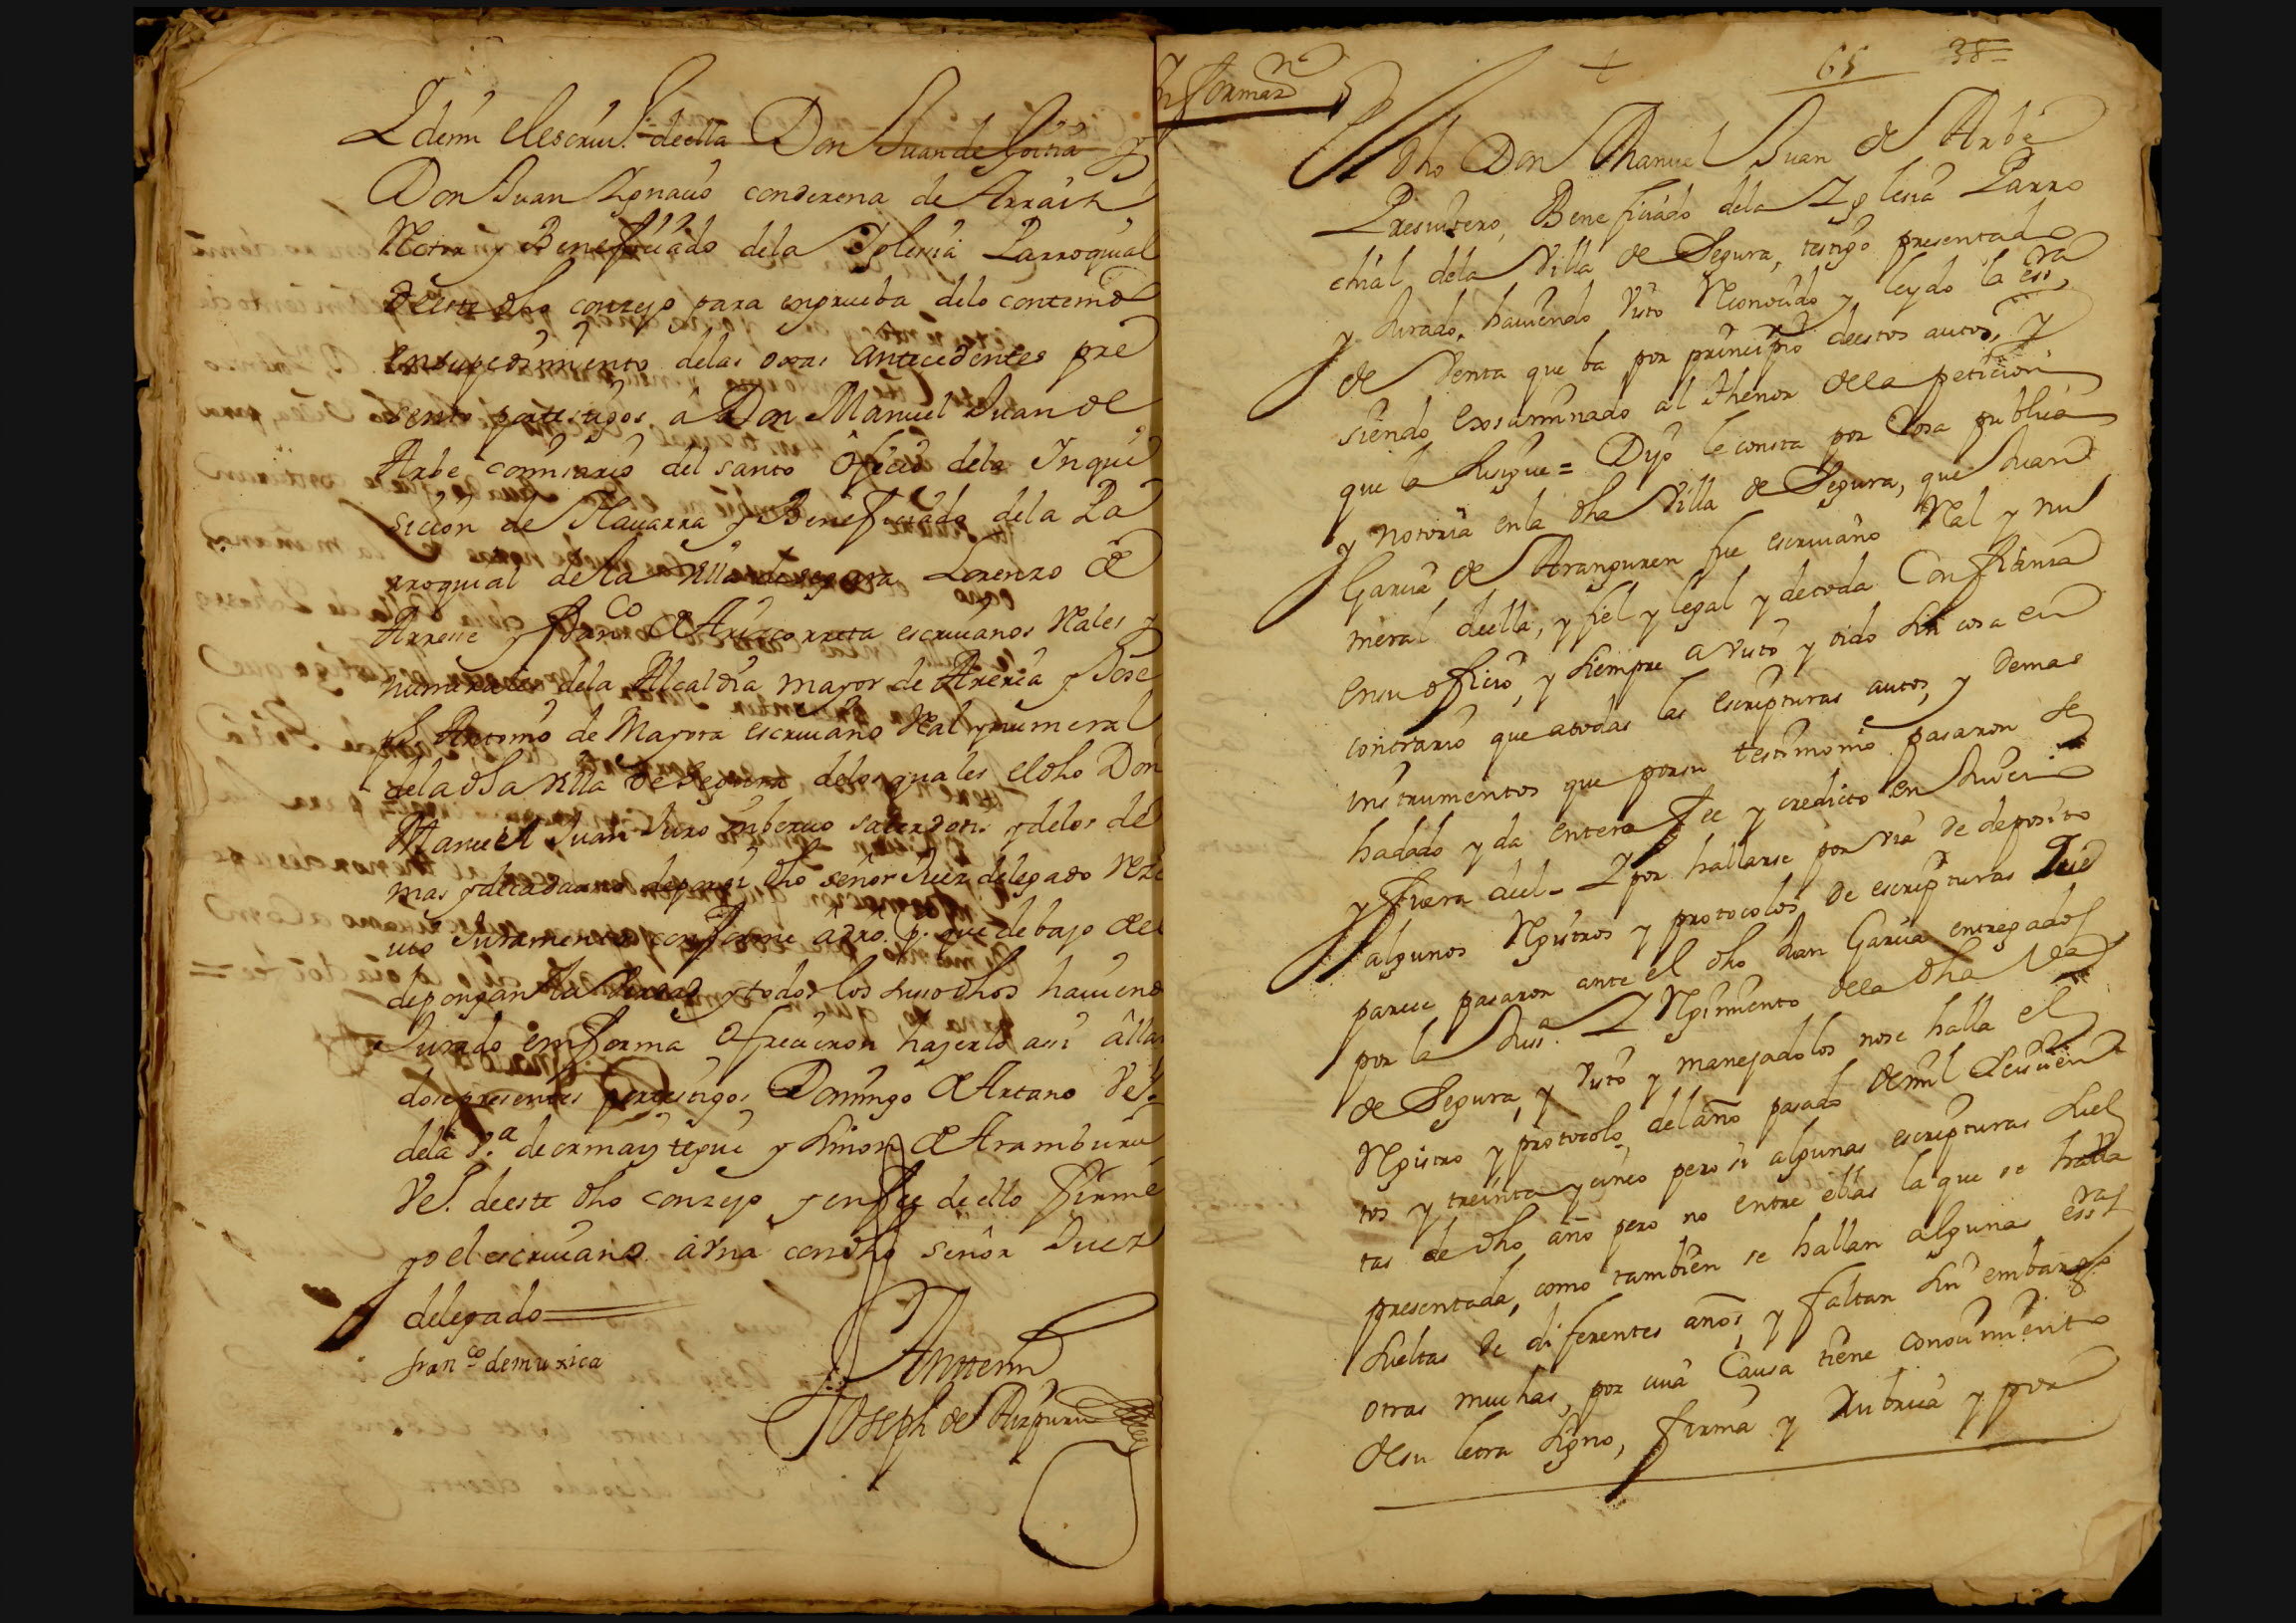 Y de mi el escriu.º deella Don Juan de Goitia y
Don Juan Ygnacio conderena de Arraiz
Retor y Beneficiado dela Yglesia Parroquial
de este dho conzejo para enprueba delo contenido
ensupedimiento delas otras antecedentes pre
sento portestigos a Don Manuel Juan de
Arbe comisario del santo oficio dela Inqui
sicion de Nauarra y Beneficiado dela Pa
rroquial de la villa desegura Lorenzo de
Arrese y Franco de Arizcorreta escriuanos Rales y
numerales dela Alcaldia mayor de Areria y Jose
ph Antonio de Mayora escriuano Real ynumeral
dela dha villa de Segura delos quales el dho Don
Manuel Juan Juro inberuo sacerdotis ydelos de
mas ydecadauno deporsi dho señor Juez delegado Reci
uio Juramento conforme adro. p. que debajo del
depongan la verdad y todos los susodhos hauiendo
Jurado enforma ofrecieron hazerlo assi allan
dosepresentes portestigos Domingo de Artano Ve.º
dela V.ª de ormayztegui y Simon de Aramburu
Ve.º deeste dho conzejo y enfee de ello firme
yo el escriuano a vna con dho señor Juez
delegado
fran.co demuxica
Antemi
Joseph de Aizpuru
Informaz.n
+
65
38
El dho Don Manuel Juan de Arbe
Presuitero, Beneficiado dela Yglesia Parro
chial dela Villa de Segura, testigo presentado
y Jurado, hauiendo visto Reconocido y leydo la essra
de Venta que ba por principio deestos autos, y
siendo exsaminado al thenor dela peticion
que la Susigue = Dijo le consta por Cosa publica
y notoria enla dha Villa de Segura, que Juan
Garcia de Aranguren fue escriuano Real y nu
meral deella, y fiel y legal y detoda Confianza
ensu oficio, y siempre a visto y oido sin cosa en
contrario que atodas las escripturas autos, y demas
instrumentos que porsu testimonio pasaron se
hadado y da entera fee y credito en Juicio
y fuera del = Y por hallarse por via de deposito
algunos Registros y protocolos de escripturas que
parece pasaron ante el dho Juan Garcia entregados
por la Jus.ª Y Regimiento dela dha Va
de Segura, y visto y manejadolos nose halla el
Registro y protocolo, del año pasado demil seiscien
tos y treinta y cinco pero si algunas escripturas suel
tas de dho año pero no entre ellas la que se halla
presentada, como tambien se hallan algunas essras
sueltas de diferentes años, y faltan sin embargo
otras muchas, por cuia Causa tiene conocimiento
desu letra signo, firma y Rubrica y por